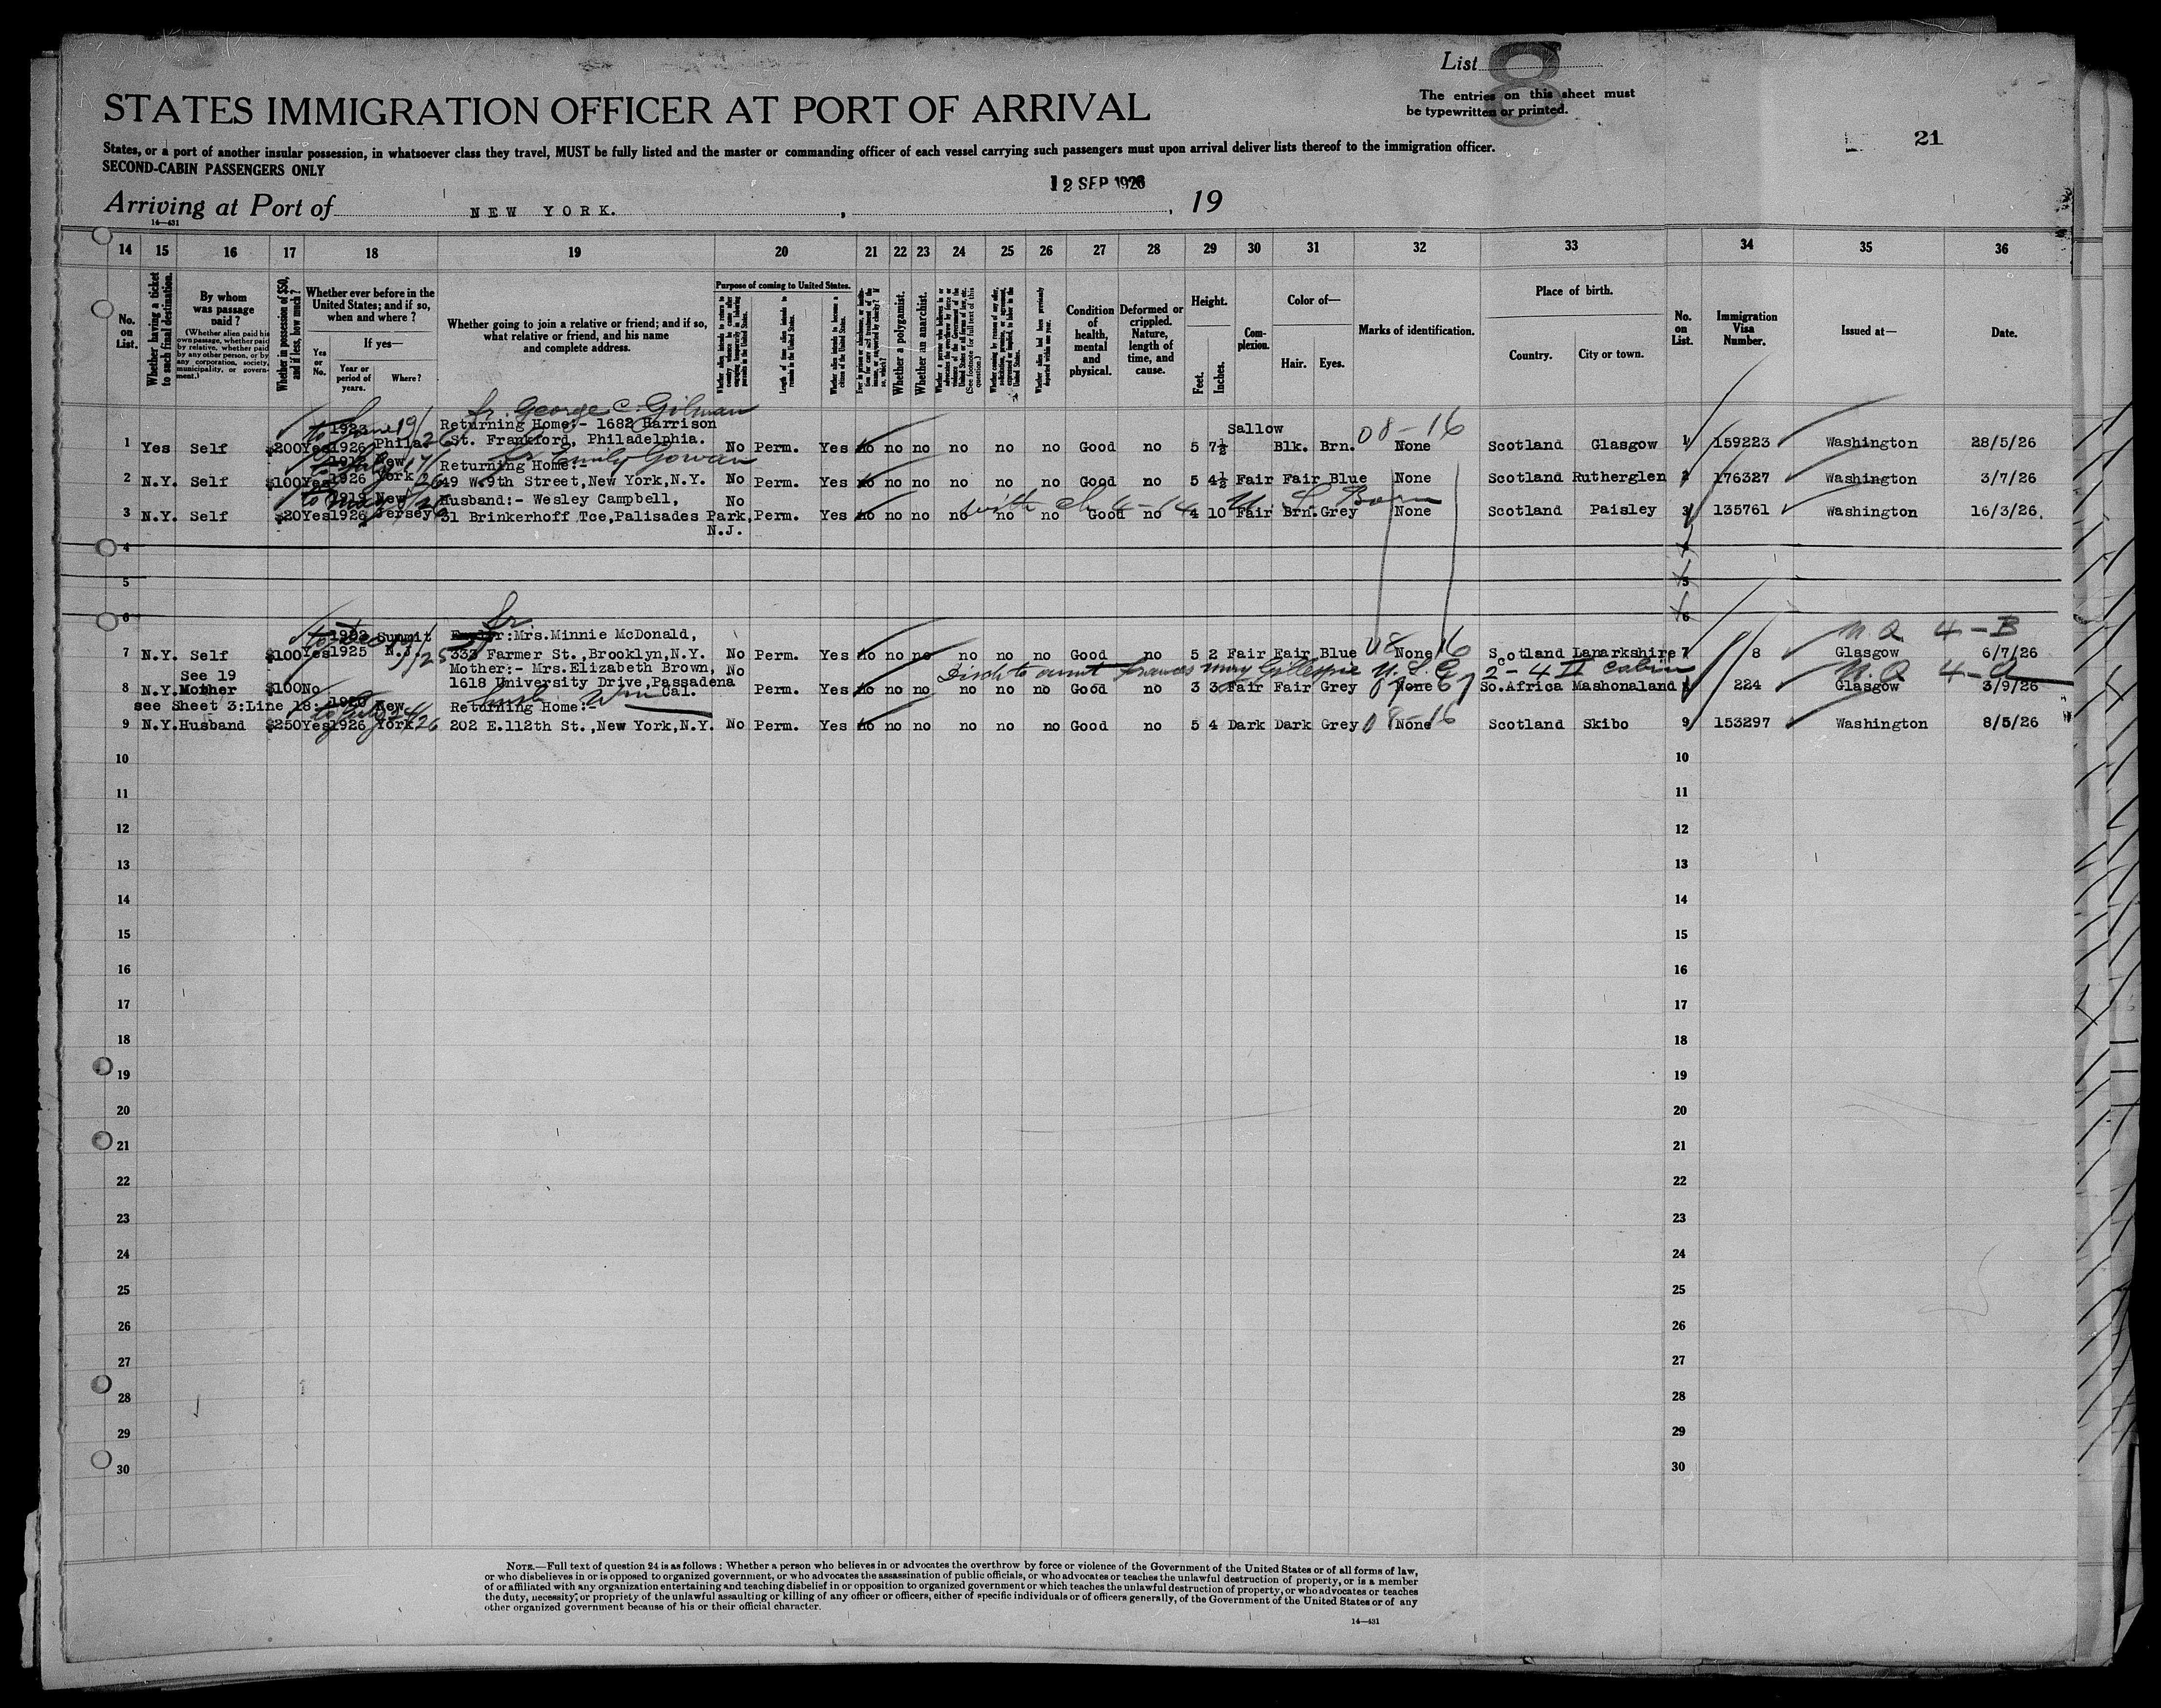 List 8
The entries on this sheet must
be typewritten or printed.
STATES IMMIGRATION OFFICER AT PORT OF ARRIVAL
21
States, or a port of another insular possession, in whatsoever class they travel, MUST be fully listed and the master or commanding officer of each vessel carrying such passengers must upon arrival deliver lists thereof to the immigration officer.
SECOND-CABIN PASSENGERS ONLY
12 SEP 1926
Arriving at Port of NEW YORK. , , 19
14—431
14 15 16 17 18 19 20 21 22 23 24 25 26 27 28 29 30 31 32 33 34 35 36
No. on List.
Whether having a ticket to such final destination.
By whom was passage paid?
(Whether alien paid his own passage, whether paid by relative, whether paid by any other person, or by any corporation, society, municipality, or government.)
Whether in possession of $50, and if less, how much?
Whether ever before in the United States; and if so, when and where?
Yes or No.
If yes—
Year or period of years.
Where?
Whether going to join a relative or friend; and if so, what relative or friend, and his name and complete address.
Purpose of coming to United States.
Length of time alien intends to remain in the United States.
Whether alien intends to become a citizen of the United States.
Whether a polygamist.
Whether an anarchist.
Condition of health, mental and physical.
Deformed or crippled. Nature, length of time, and cause.
Height.
Feet.
Inches.
Complexion.
Color of—
Hair. Eyes.
Marks of identification.
Place of birth.
Country. City or town.
No. on List.
Immigration Visa Number.
Issued at—
Date.
fr. George C. Gilman
1923 Returning Home:- 1682 Harrison Sallow 08-16
1 Yes Self $200 Yes 1926 Phila. St. Frankford, Philadelphia. No Perm. Yes no no no no no no Good no 5 7½ Blk. Brn. None Scotland Glasgow 1 159223 Washington 28/5/26
New Returning Home:- fr Emily Gowan
2 N.Y. Self $100 Yes 1926 York 49 W.9th Street,New York,N.Y. No Perm. Yes no no no no no no Good no 5 4½ Fair Fair Blue None Scotland Rutherglen 2 176327 Washington 3/7/26
New Husband:- Wesley Campbell, No with ch 4-14 U.S. Born
3 N.Y. Self $20 Yes 1926 Jersey 31 Brinkerhoff Tce,Palisades Park, Perm. Yes no no no no no no Good no 4 10 Fair Brn. Grey None Scotland Paisley 3 135761 Washington 16/3/26.
N.J.
4 4
5 5
6 6
Summit fr :Mrs.Minnie McDonald, 08 16 N.Q. 4-B
7 N.Y. Self $100 Yes 1925 N.J. 333 Farmer St.,Brooklyn,N.Y. No Perm. Yes no no no no no no Good no 5 2 Fair Fair Blue None Scotland Lanarkshire 7 8 Glasgow 6/7/26
See 19 Mother:- Mrs.Elizabeth Brown, No Disch to aunt Frances Mary Gillespie U.S.C. 2-4 II Cabin N.Q. 4-
8 N.Y. Mother $100 No 1618 University Drive,Passadena Cal. Perm. Yes no no no no no no Good no 3 3 Fair Fair Grey None So.Africa Mashonaland 8 224 Glasgow 3/9/26
see Sheet 3:Line 18: New Returning Home:-
9 N.Y. Husband $250 Yes 1926 York 202 E.112th St.,New York,N.Y. No Perm. Yes no no no no no no Good no 5 4 Dark Dark Grey 08-16 None Scotland Skibo 9 153297 Washington 8/5/26
10 10
11 11
12 12
13 13
14 14
15 15
16 16
17 17
18 18
19 19
20 20
21 21
22 22
23 23
24 24
25 25
26 26
27 27
28 28
29 29
30 30
NOTE.—Full text of question 24 is as follows: Whether a person who believes in or advocates the overthrow by force or violence of the Government of the United States or of all forms of law,
or who disbelieves in or is opposed to organized government, or who advocates the assassination of public officials, or who advocates or teaches the unlawful destruction of property, or is a member
of or affiliated with any organization entertaining and teaching disbelief in or opposition to organized government or which teaches the unlawful destruction of property, or who advocates or teaches
the duty, necessity, or propriety of the unlawful assaulting or killing of any officer or officers, either of specific individuals or of officers generally, of the Government of the United States or of any
other organized government because of his or their official character.
14—431